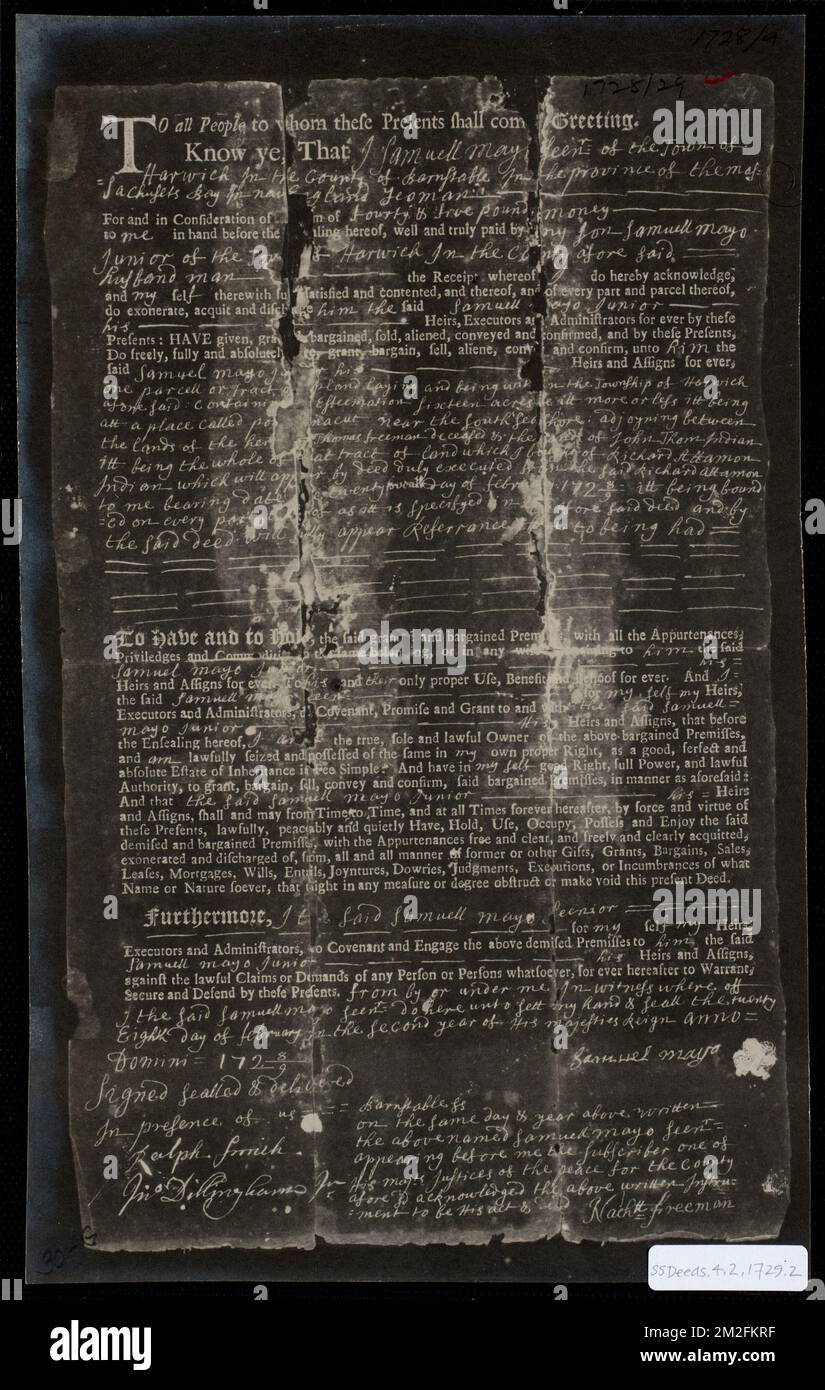 1728/9
1728/29
TO all People to whom theſe Preſents ſhall com Greeting.
Know ye, That I Samuell mayo Seenr of the Town of
Harwich In the County of Barnstable In the province of the mas=
=Sachusets Bay In new England Yeoman
For and in Conſideration of m of Fourty & five pound money
to me in hand before the aling hereof, well and truly paid by my Son Samuell mayo
Junior of the of Harwich In the Co afore said
husband man the Receipt whereof I do hereby acknowledge,
and my self therewith fu ſatisfied and contented, and thereof, and of every part and parcel thereof,
do exonerate, acquit and diſch ge him the ſaid Samuell mayo Junior
his Heirs, Executors and Adminiſtrators for ever by theſe
Preſents: HAVE given, gra bargained, ſold, aliened, conveyed and confirmed, and by theſe Preſents,
Do freely, fully and abſolutely grant, bargain, ſell, aliene, con and confirm, unto him the
ſaid Samuell mayo ju his Heirs and Aſſigns for ever,
one parcell or tract land laying and being in the Township of Harwich
afore said: Containi Esteemation Sixteen acres be itt more or less itt being
att a place called po macut near the South Sea shore: adjoyning between
the lands of the Thomas freeman deceased & the of John Thom Indian
itt being the whole of that tract of land which I of Richard Attamon
Indian which will app by deed duly executed the said Richard attamon
to me bearing dat twenty Day of febr 172 8/9 itt being bound
=ed on every part as itt is specifyed in afore said deed and by
the said deed will appear Referrance to being had=
To Have and to Hold, the ſaid granted and bargained Premiſſes, with all the Appurtenances,
Priviledges and Commodities to the ſame belonging, or in any wiſe to him the ſaid
Samuell mayo Junior his=
Heirs and Aſſigns for ever. To his and their only proper Uſe, Benefit and Behoof for ever. And I=
the ſaid Samuell mayo Seenr for my self my Heirs,
Executors and Adminiſtrators, do Covenant, Promiſe and Grant to and with the said Samuell=
mayo Junior His Heirs and Aſſigns, that before
the Enſealing hereof, I am the true, ſole and lawful Owner of the above-bargained Premiſſes,
and am lawfully ſeized and poſſeſſed of the ſame in my own proper Right, as a good, perfect and
abſolute Eſtate of Inheritance in Fee Simple: And have in my self good Right, full Power, and lawful
Authority, to grant, bargain, ſell, convey and confirm, ſaid bargained premiſſes, in manner as aforeſaid:
And that the said Samuell mayo Junior his= Heirs
and Aſſigns, ſhall and may from Time to Time, and at all Times forever hereafter, by force and virtue of
theſe Preſents, lawfully, peaceably and quietly Have, Hold, Uſe, Occupy, Poſſeſs and Enjoy the ſaid
demiſed and bargained Premiſſes, with the Appurtenances free and clear, and freely and clearly acquitted,
exonerated and diſcharged of, from, all and all manner of former or other Gifts, Grants, Bargains, Sales,
Leaſes, Mortgages, Wills, Entails, Joyntures, Dowries, Judgments, Executions, or Incumbrances of what
Name or Nature ſoever, that might in any meaſure or degree obſtruct or make void this preſent Deed.
Furthermore, I the said Samuell mayo Seenior
for my self my Heirs
Executors and Adminiſtrators, do Covenant and Engage the above demiſed Premiſſes to him the ſaid
Samuell mayo Junior his Heirs and Aſſigns,
againſt the lawful Claims or Demands of any Perſon or Perſons whatſoever, for ever hereafter to Warrant,
Secure and Defend by theſe Preſents. from by or under me In witness where off
I the said Samuell mayo seenr do here unto sett my hand & seall the twenty
Eight day of february In the second year of His majesties Reign anno=
Domini = 172 8/9
Samuel mayo
Signed sealled & delivered
In presence of us
Ralph Smith
Jno Dillingham Jr
Barnstable ss
on the same day & year above written=
the above named Samuell mayo Seenr=
appearing before me the Subscriber one of
His majs Justices of the peace for the County
afore sd acknowledged the above written Instru=
=ment to be His act & deed Nachll freeman
30-
SSDeeds.4.2.1729:2
alamy
Image ID: 2M2FKRF
www.alamy.com